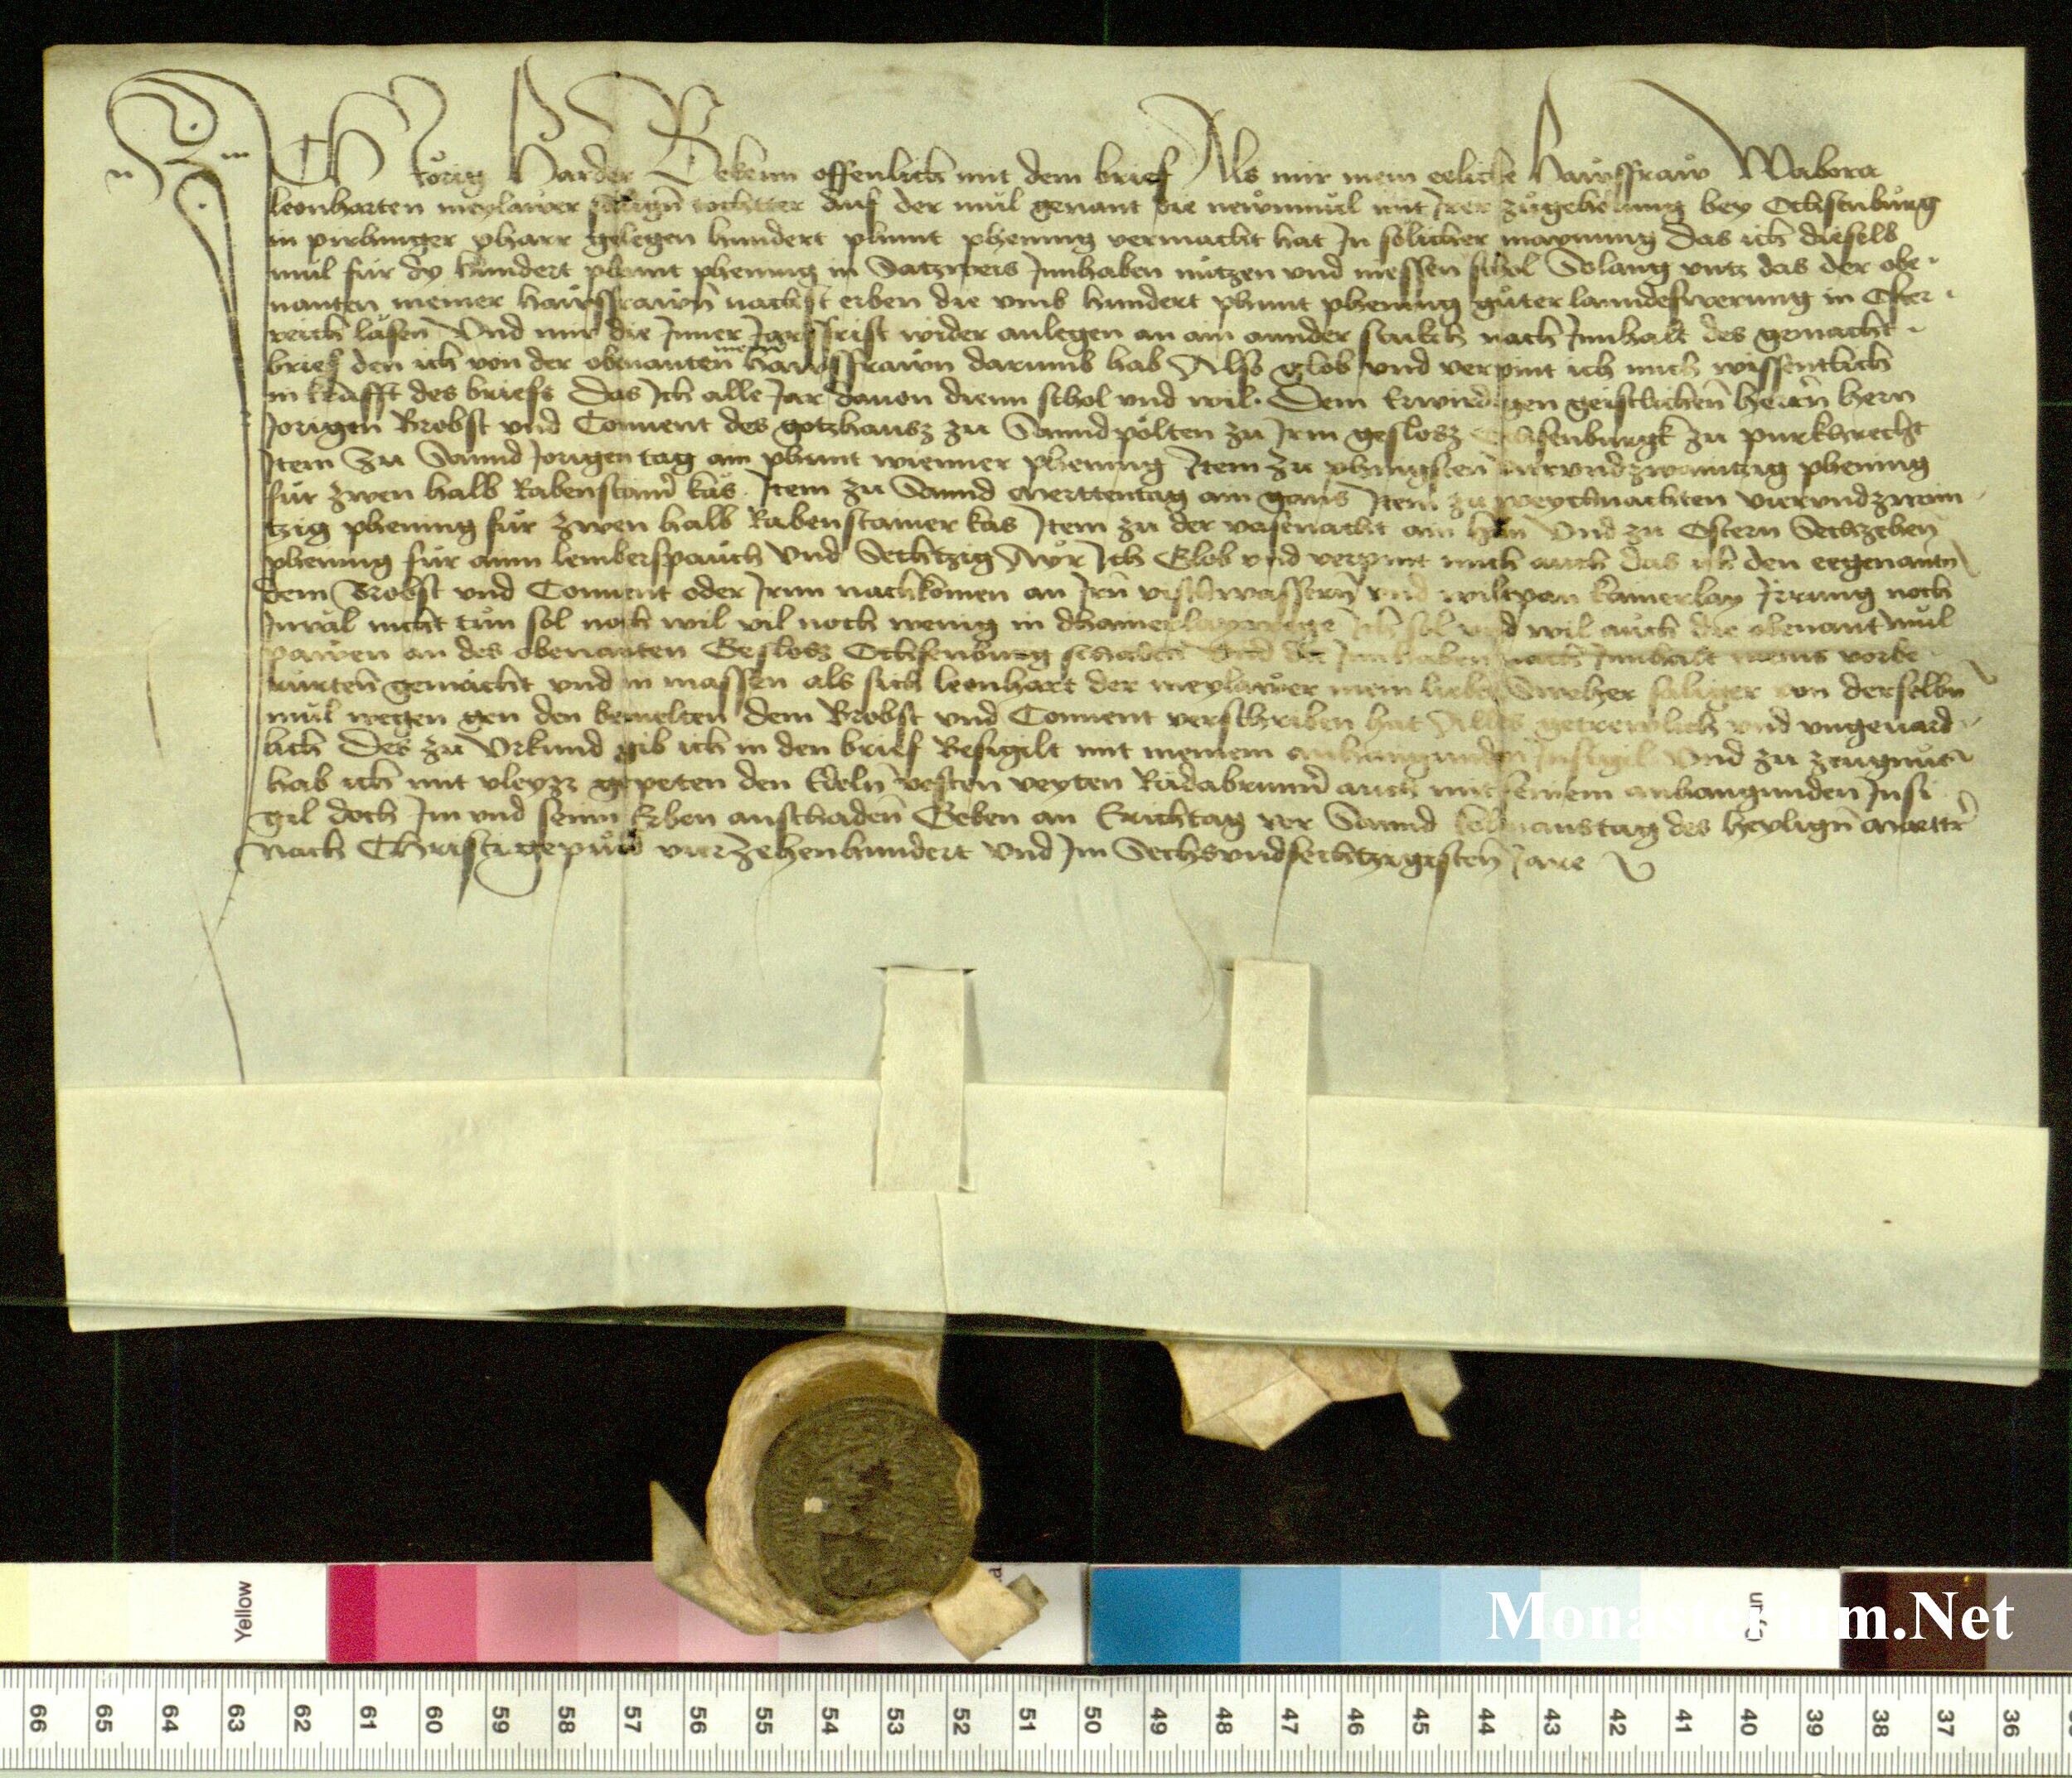 Ich Jorig Harder Bekenn offenlich mit dem brief Als mir mein eeliche Hawsfraw Wabora
leonharten meylawer tochtter auf der mul genant die newnmul mit Jrer zugehorung bey Ochsenburg
in pirhinger pharr gelegen hundert phunt phening vermacht hat Jn solicher maynung das ich dieselb
mul fur dy hundert phunt phening in Satzweis Jnnhaben nutzen vnd niessen schol Solang vntz das der obe
nanten meiner hawsfrawn nachst erben die vmb hundert phunt phening guter lanndeswerung in Oster
reich lasen Vnd mir die Jnner Jarsfrist wider anlegen an ain annder stukch nach Jnnhalt des gemacht
brief den ich von der obenanten meiner hawsfrawn darumb hab Also glob vnd verpint ich mich wissentlich
in krafft des briefs Das Jch alle Jar dauon dienn schol vnd wil Dem Erwirdigen geistlichen herrn hern
Jorigen Brobst vnd Conuent des gotzhausz zu Sannd polten zu Jrm geslosz Ochsenburgk zu purkhrecht
Jtem Zu Sannd Jorigen tag ain phunt wienner phening Jtem zu phingsten virvndzwaintzig phening
fur zwen halb Rabenstainer kas Jtem zu Sannd Merttentag ain gans Jtem zu weychnachten viervndzwain
tzig phening fur zwen halb Rabenstainer kas Jtem zu der vasnacht ain hen Vnd zu Ostern Sechzehen
phening fur ainn lemberspauch Vnd Sechtzig Ayr Jch Glob vnd verpint mich auch das ich den eegenantn
dem Brobst vnd Conuent oder Jrnn nachkomen an Jrn vischwassern vnd wiltpan kainerlay Jrrung noch
Jnual nicht tun sol noch wil vil noch wenig in dhainerlay wege Jch sol vnd wil auch die obenant mul
pawen an des obenanten Geslosz Ochsenburg schaden Vnd die Jnnhaben nach Jnnhalt meins vorbe
rurten gemacht vnd in massen als sich leonhart der meylawer mein lieber Sweher saliger von derselbn
mul wegen gen den bemelten dem Brobst vnd Conuent verschriben hat Alles getrewlich vnd vngeuard
lich Des zu Vrkund gib ich in den brief Besigilt mit meinem anhangunden Jnsigil Vnd zu zeugnuss
hab ich mit vleyzz gepeten den Edeln vesten veyten Radabrunner auch mit seinem anhangunden Jnsi
gil doch Jm vnd seinn Erben anschaden Geben an Erichtag vor Sannd kolmanstag des heyligen Martrer
Nach Christi gepurd vierzehenhundert vnd Jm Sechsvndsechtzigisten Jare
Yellow
Monasterium.Net
66 65 64 63 62 61 60 59 58 57 56 55 54 53 52 51 50 49 48 47 46 45 44 43 42 41 40 39 38 37 36